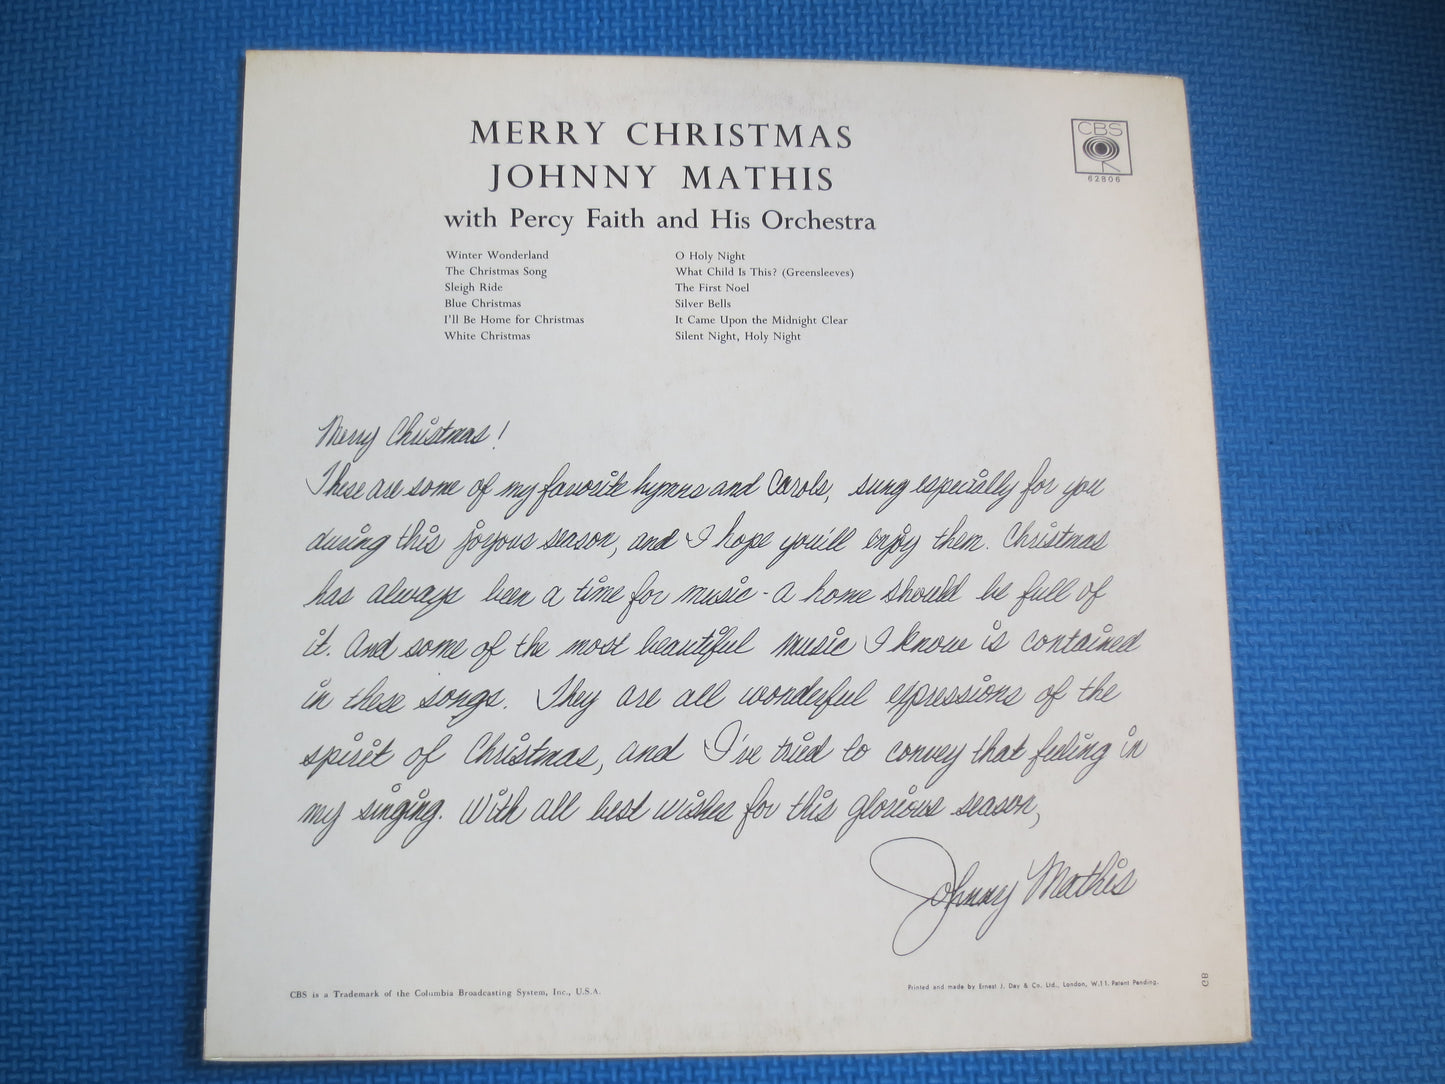 MERRY CHRISTMAS
JOHNNY MATHIS
with Percy Faith and His Orchestra
CBS
62806
Winter Wonderland
The Christmas Song
Sleigh Ride
Blue Christmas
I'll Be Home for Christmas
White Christmas
O Holy Night
What Child Is This? (Greensleeves)
The First Noel
Silver Bells
It Came Upon the Midnight Clear
Silent Night, Holy Night
Merry Christmas!
These are some of my favorite hymns and Carols, sung especially for you
during this joyous season, and I hope you'll enjoy them. Christmas
has always been a time for music - a home should be full of
it. And some of the most beautiful music I know is contained
in these songs. They are all wonderful expressions of the
spirit of Christmas, and I've tried to convey that feeling in
my singing. With all best wishes for this glorious season,
Johnny Mathis
CBS is a Trademark of the Columbia Broadcasting System, Inc., U.S.A.
Printed and made by Ernest J. Day & Co. Ltd., London, W.11. Patent Pending.